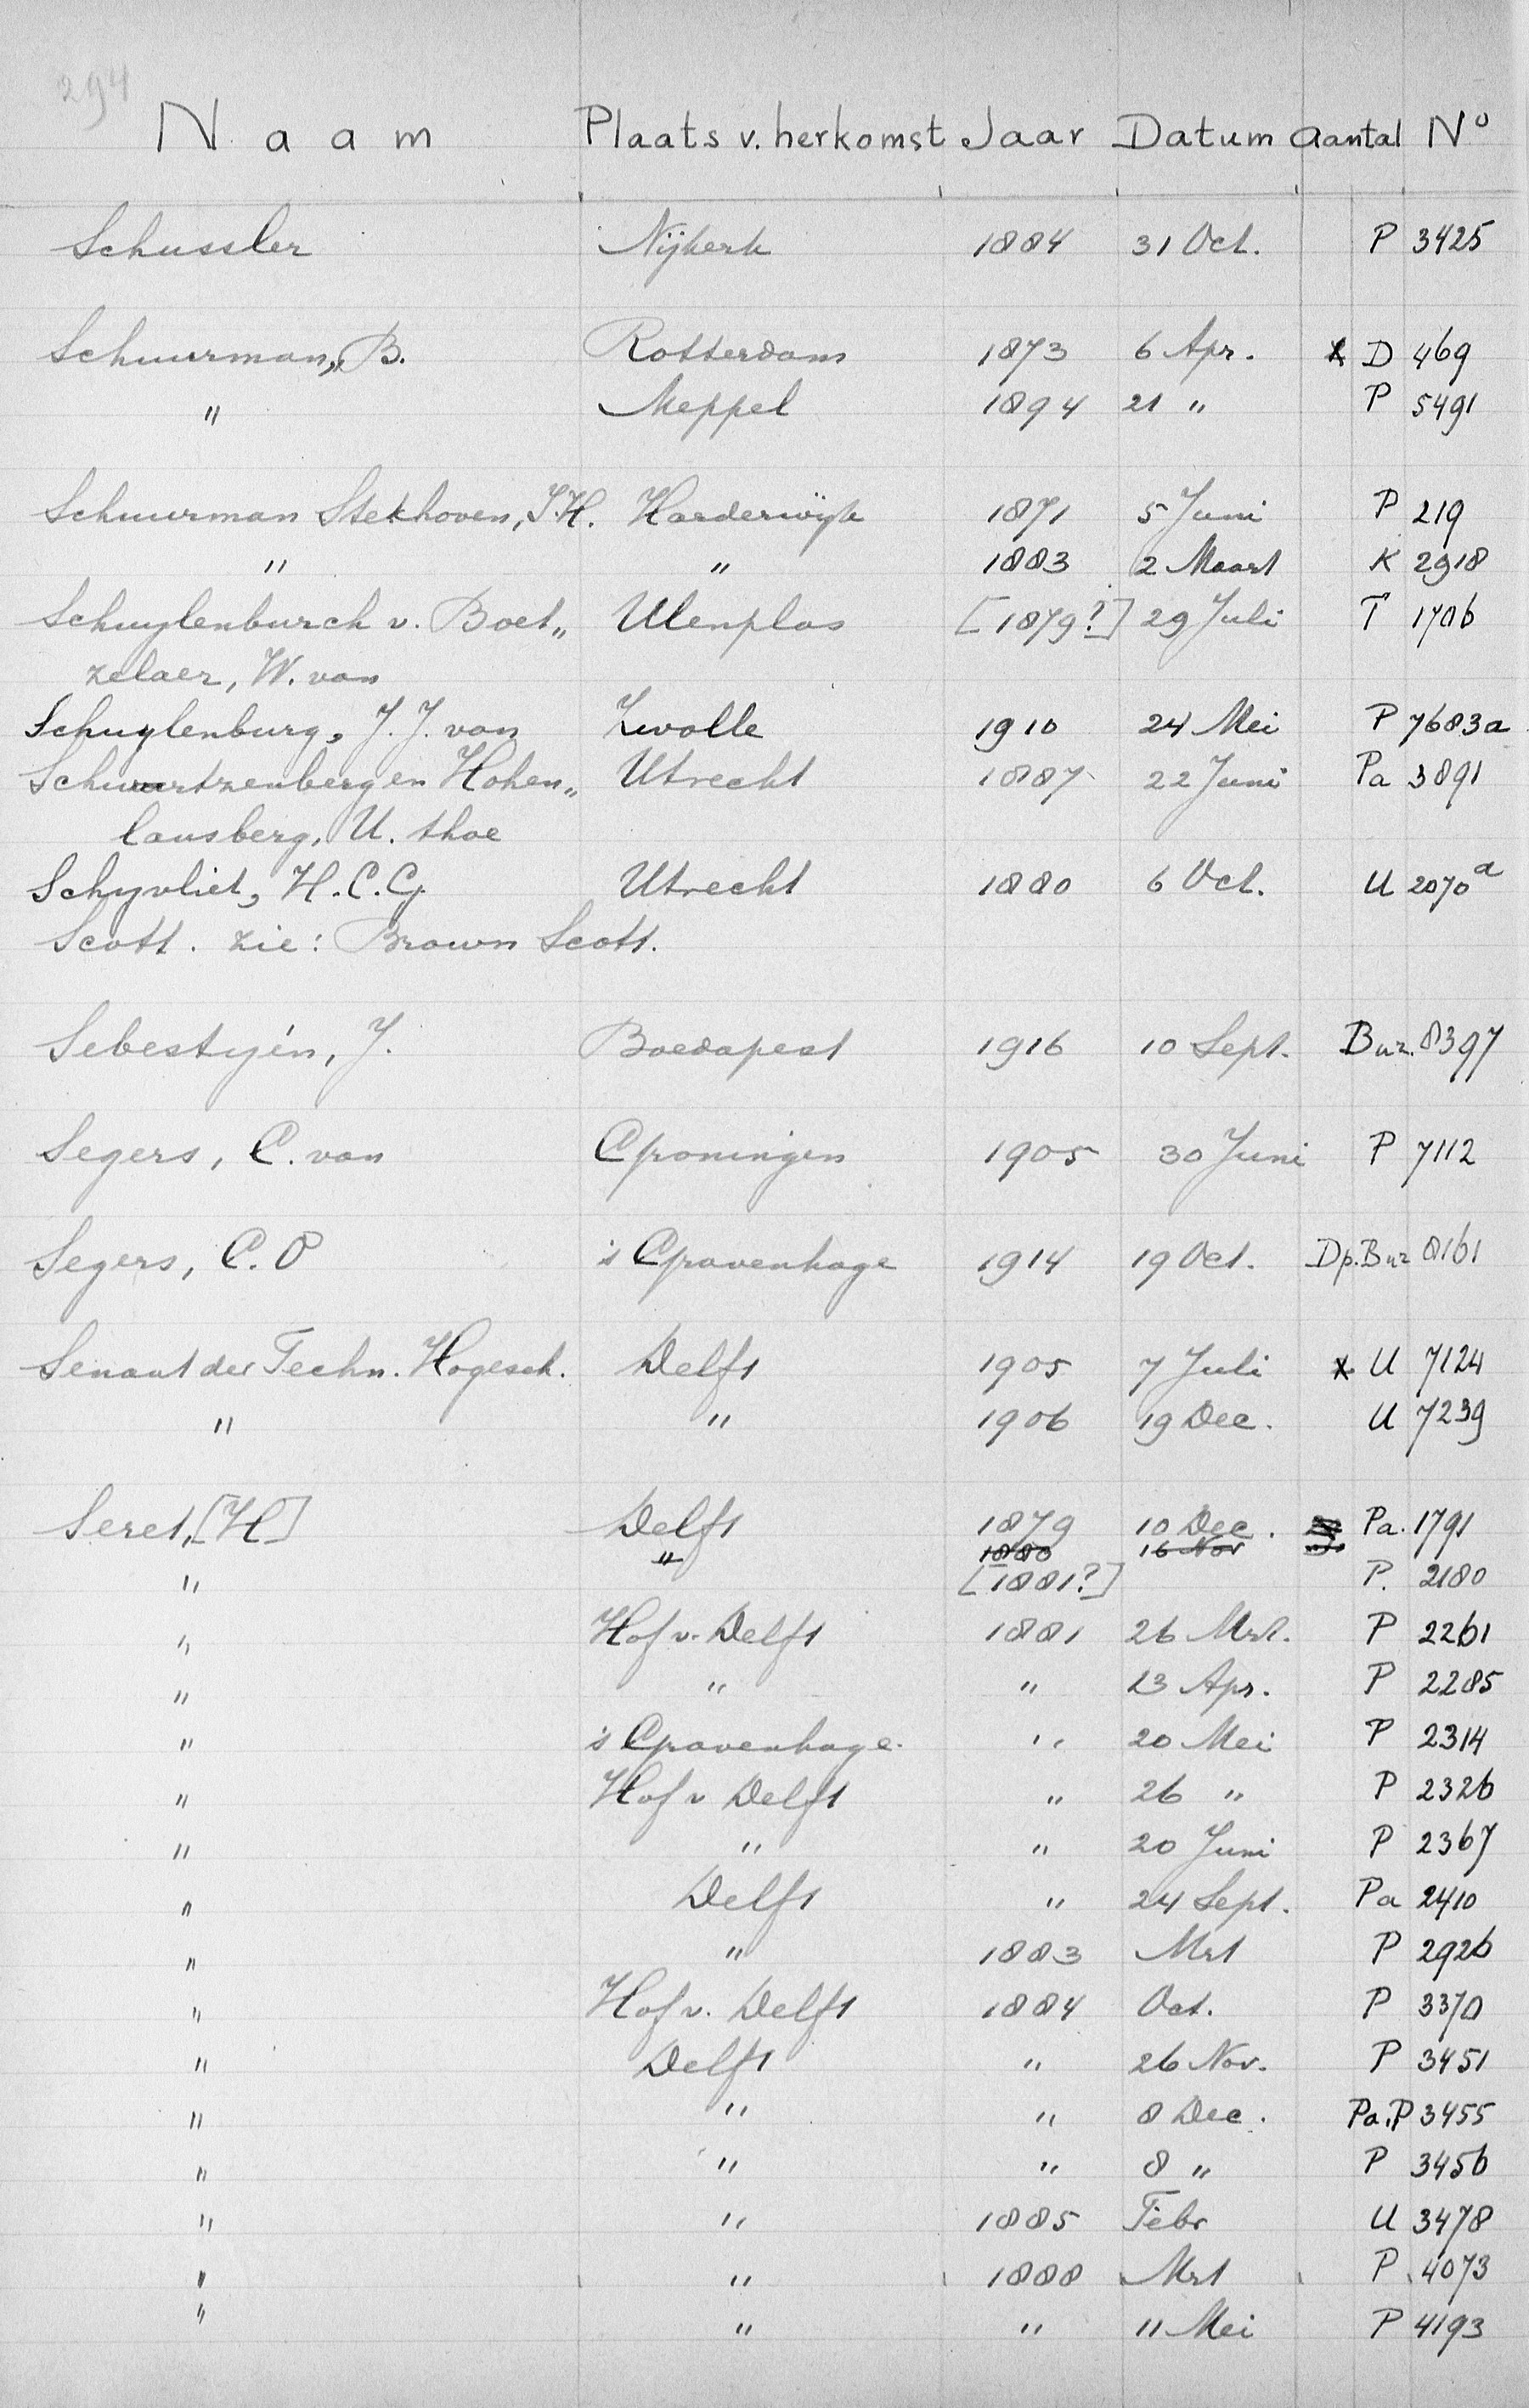 294
Naam Plaats v. herkomst Jaar Datum Aantal No
Schussler Nijkerk 1884 31 Oct. P 3425
Schuurman, B. Rotterdam 1873 6 Apr. x D 469
" Meppel 1894 21 " P 5491
Schuurman Stekhoven, J.H. Harderwijk 1871 5 Juni P 219
" " 1883 2 Maart K 2918
Schuylenburch v. Boet„ Ulenplas [1879?] 29 Juli T 1706
zelaer, W. van
Schuylenburg, J.J. van Zwolle 1910 24 Mei P 7683a
Schwartzenberg en Hohen„ Utrecht 1887 22 Juni Pa 3891
lansberg, U. thoe
Schyvliet, H.C.G. Utrecht 1880 6 Oct. U 2070a
Scott. zie: Brown Scott.
Sebestyén, J. Boedapest 1916 10 Sept. Bur. 8397
Segers, C. van Groningen 1905 30 Juni P 7112
Segers, C.O 's Gravenhage 1914 19 Oct. Dp.Bur 8161
Senaat der Techn. Hogesch. Delft 1905 7 Juli x U 7124
" " 1906 19 Dec. U 7239
Seret, [H] Delft 1879 10 Dec. Pa. 1791
" 1880 16 Nov
" [1881?] P. 2180
" Hof v. Delft 1881 26 Mrt. P 2261
" " " 13 Apr. P 2285
" 's Gravenhage. " 20 Mei P 2314
" Hof v Delft " 26 " P 2326
" " " 20 Juni P 2367
" Delft " 24 Sept. Pa 2410
" " 1883 Mrt P 2926
" Hof v. Delft 1884 Oct. P 3370
" Delft " 26 Nov. P 3451
" " " 8 Dec. Pa.P 3455
" " " 8 " P 3456
" " 1885 Febr U 3478
" " 1888 Mrt P 4073
" " " 11 Mei P 4193